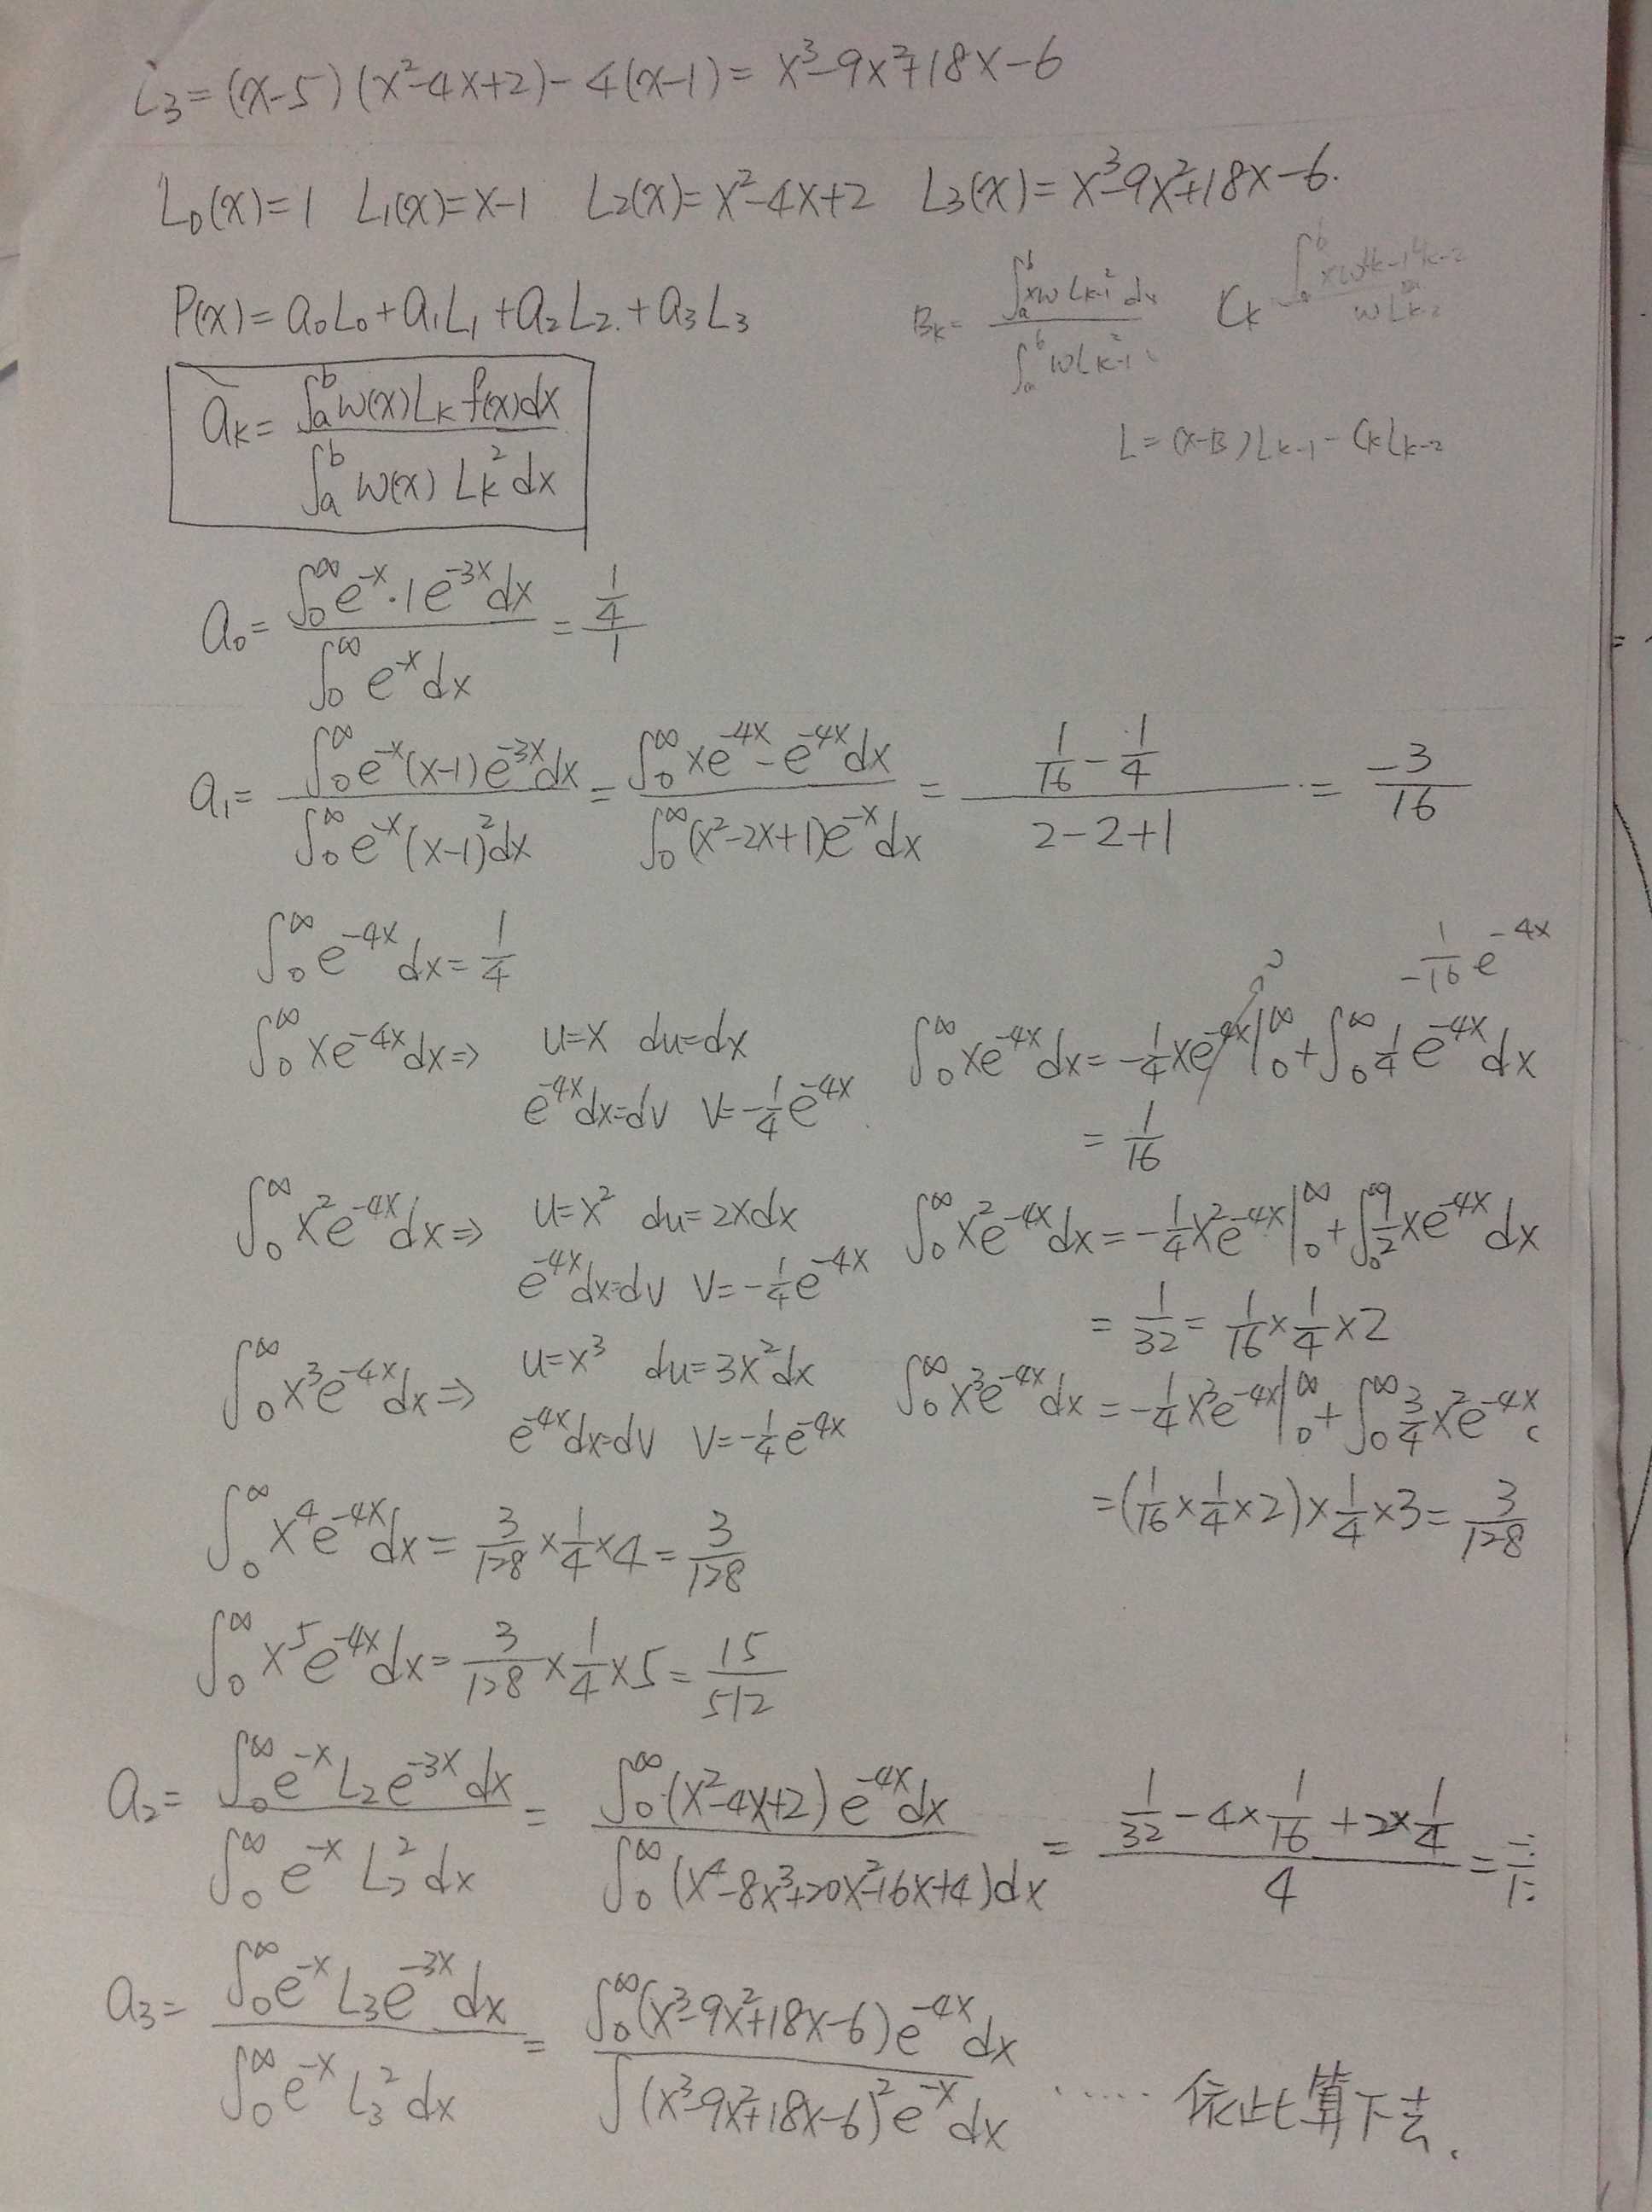 L₃=(x-5)(x²-4x+2)-4(x-1)=x³-9x²+18x-6
L₀(x)=1 L₁(x)=x-1 L₂(x)=x²-4x+2 L₃(x)=x³-9x²+18x-6.
P(x)=a₀L₀+a₁L₁+a₂L₂.+a₃L₃
Bₖ= ∫ₐᵇxwLₖ₋₁²dx / ∫ₐᵇwLₖ₋₁² Cₖ
aₖ= ∫ₐᵇw(x)Lₖf(x)dx / ∫ₐᵇw(x)Lₖ²dx
L=(x-B)Lₖ₋₁-CₖLₖ₋₂
a₀= ∫₀^∞e^{-x}·1e^{-3x}dx / ∫₀^∞e^{-x}dx = (1/4)/1
a₁= ∫₀^∞e^{-x}(x-1)e^{-3x}dx / ∫₀^∞e^{-x}(x-1)²dx = ∫₀^∞xe^{-4x}-e^{-4x}dx / ∫₀^∞(x²-2x+1)e^{-x}dx = (1/16-1/4)/(2-2+1) = -3/16
∫₀^∞e^{-4x}dx=1/4
-1/16 e^{-4x}
∫₀^∞xe^{-4x}dx⇒ u=x du=dx ∫₀^∞xe^{-4x}dx=-1/4xe^{-4x}|₀^∞+∫₀^∞1/4e^{-4x}dx
e^{-4x}dx=dv v=-1/4e^{-4x} =1/16
∫₀^∞x²e^{-4x}dx⇒ u=x² du=2xdx ∫₀^∞x²e^{-4x}dx=-1/4x²e^{-4x}|₀^∞+∫₀^∞1/2xe^{-4x}dx
e^{-4x}dx=dv v=-1/4e^{-4x} =1/32=1/16×1/4×2
∫₀^∞x³e^{-4x}dx⇒ u=x³ du=3x²dx ∫₀^∞x³e^{-4x}dx=-1/4x³e^{-4x}|₀^∞+∫₀^∞3/4x²e^{-4x}
e^{-4x}dx=dv v=-1/4e^{-4x} =(1/16×1/4×2)×1/4×3=3/128
∫₀^∞x⁴e^{-4x}dx=3/128×1/4×4=3/128
∫₀^∞x⁵e^{-4x}dx=3/128×1/4×5=15/512
a₂= ∫₀^∞e^{-x}L₂e^{-3x}dx / ∫₀^∞e^{-x}L₂²dx = ∫₀^∞(x²-4x+2)e^{-4x}dx / ∫₀^∞(x⁴-8x³+20x²-16x+4)dx = (1/32-4×1/16+2×1/4)/4 =
a₃= ∫₀^∞e^{-x}L₃e^{-3x}dx / ∫₀^∞e^{-x}L₃²dx = ∫₀^∞(x³-9x²+18x-6)e^{-4x}dx / ∫(x³-9x²+18x-6)²e^{-x}dx ······ 依此算下去.